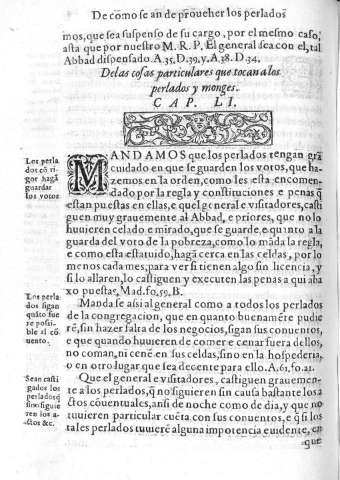 De como se an de proueher los perlados
mos, que sea suspenso de su cargo, por el mesmo caso,
asta que por nuestro M. R. P. El general sea con el, tal
Abbad dispensado. A.35.D.39.y.A.38.D.34.
De las cosas particulares que tocan a los
perlados y monges.
CAP. LI.
MANDAMOS que los perlados tengan grã
cuidado en que se guarden los votos, que ha
zemos en la orden, como les esta encomen
dado por la regla y constituciones e penas q̃
estan puestas en ellas, e quel general e visitadores, casti
guen muy grauemente al Abbad, e priores, que no lo
huuieren celado e mirado, que se guarde. e quanto a la
guarda del voto de la pobreza, como lo mãda la regla,
e como esta estatuido, hagã cerca en las celdas, por lo
menos cada mes, para ver si tienen algo sin licencia, y
si lo allaren, lo castiguen y executen las penas a qui aba
xo puestas, Mad. fo. 59. B.
Manda se aisi al general como a todos los perlados
de la congregacion, que en quanto buenamẽte pudie
rẽ, sin hazer falta de los negocios, sigan sus conuentos,
e que quando huuieren de comer e cenar fuera dellos,
no coman, ni cenẽ en sus celdas, sino en la hospederia,
o en otro lugar que sea decente para ello. A.61. fo. 21.
Que el general e visitadores, castiguen grauemen-
te a los perlados, q̃ no siguieren sin causa bastante los a
ctos cõuentuales, ansi de noche como de dia, y que no
tuuieren particular cuẽta. con sus conuentos, e q̃ si los
tales perlados tuuierẽ alguna impotencia euidente, en
que
Los perla
dos cõ ri
gor hagã
guardar
los votos
Los perla
dos sigan
quãto fue
re posi-
ble el cõ
uento.
Sean casti
gados los
perlados q̃
no siguie
ren los a-
ctos &c.